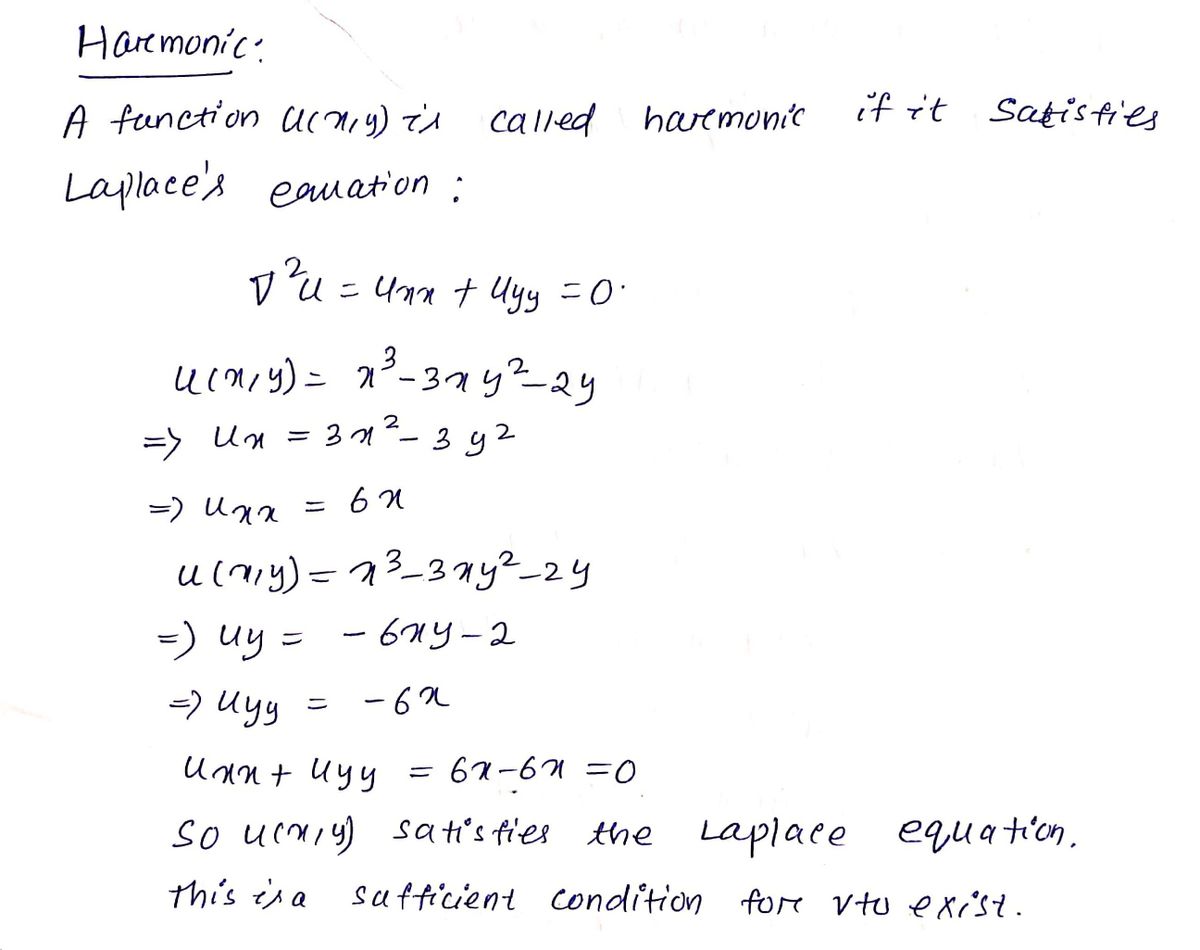 Harmonic:
A function u(x,y) is called harmonic if it satisfies
Laplace's equation :
∇²u = uxx + uyy = 0.
u(x,y) = x³-3xy²-2y
=> ux = 3x²-3y²
=> uxx = 6x
u(x,y) = x³-3xy²-2y
=> uy = -6xy-2
=> uyy = -6x
uxx + uyy = 6x-6x = 0
So u(x,y) satisfies the Laplace equation.
this is a sufficient condition for v to exist.